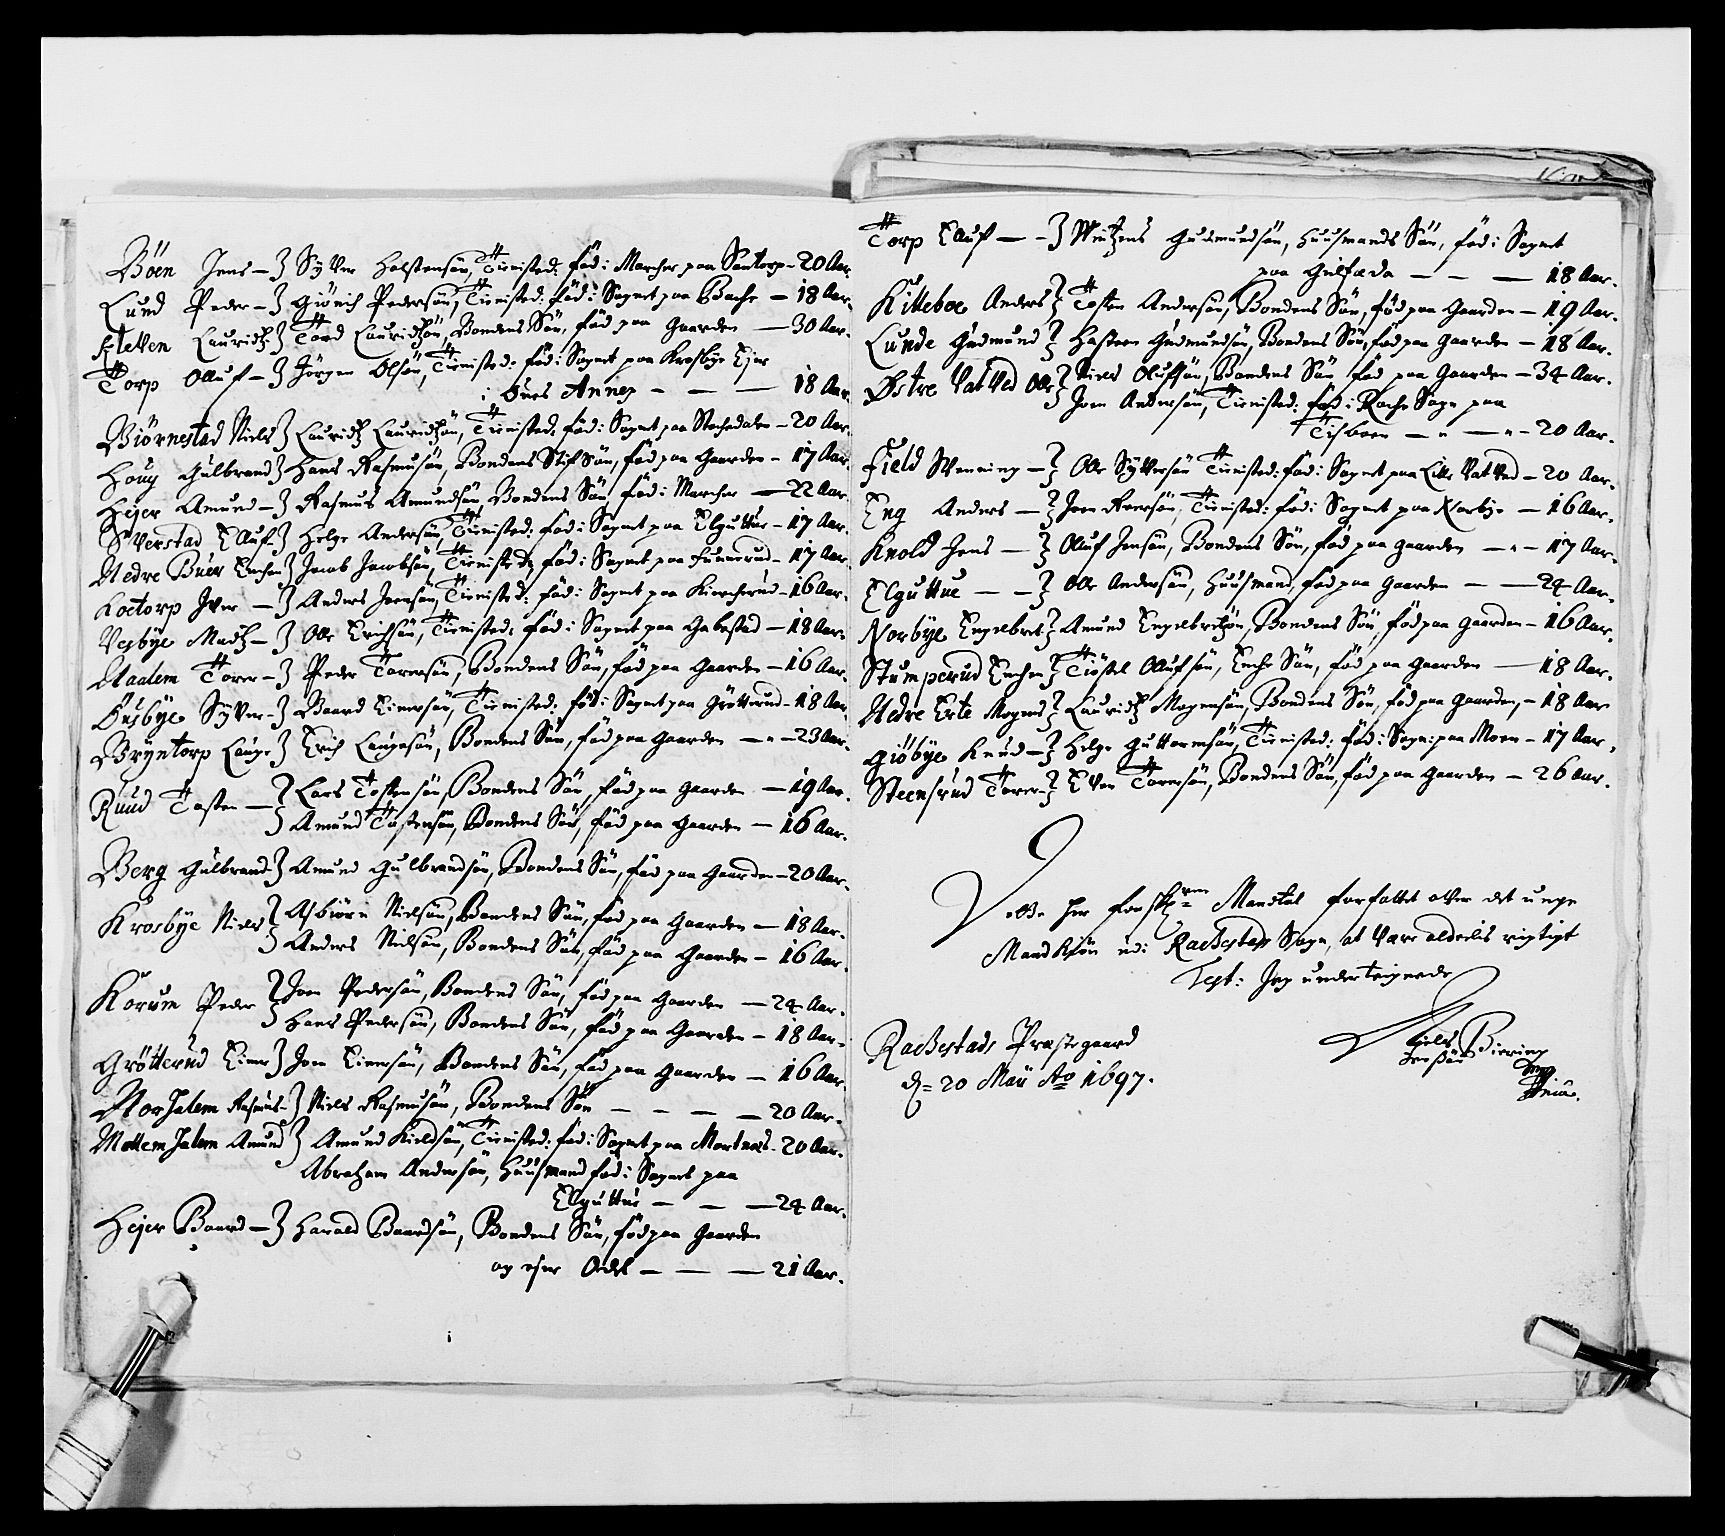 Böen Jens — } Syver Holstensön, Tienisted: föd i Marcher paa Santorp — 20 Aar.
Lund Peder — } Pedersön, Tienisted: föd i Sognet paa Bache — 18 Aar.
Kleven Lauridtz } Tord Lauridtzön, Bondens Sön, föd paa Gaarden — 30 Aar.
Torp Olluf — } Jörgen Olsön, Tienisted: föd i Sognet paa Krosbye Ejer
i — — 18 Aar.
Biörnestad Niels } Lauridtz Lauridtzön, Tienisted: föd i Sognet paa — 20 Aar.
Houg Gulbrand } Hans Rasmusön, Bondens Stif Sön, föd paa Gaarden — 17 Aar.
Hejer Amund — } Rasmus Amundsön Bondens Sön, föd i Marcher — 22 Aar.
Syverstad Elluf } Helge Andersön, Tienisted: föd i Sognet paa Elguttue — 17 Aar.
Nedre Buer Enchen } Jacob Jacobsön, Tienisted: föd i Sognet paa — 17 Aar.
Koctorp Iver — } Anders Joensön, Tienisted: föd i Sognet paa Kircherud — 16 Aar.
Vesbye Madtz — } Olle Erichsön, Tienisted: föd i Sognet paa Gabestad — 18 Aar.
Aalem Torer — } Peder Torersön, Bondens Sön, föd paa Gaarden — 16 Aar.
Ousbye Syver — } Baard Einersön, Tienisted: föd i Sognet paa Grötterud — 18 Aar.
Bryntorp Lauge } Erich Laugesön, Bondens Sön, föd paa Gaarden — 23 Aar.
Ruud Tosten — } Lars Tostensön, Bondens Sön, föd paa Gaarden — 19 Aar.
} Amund Tostensön, Bondens Sön, föd paa Gaarden — 16 Aar.
Berg Gulbrand } Amund Gulbrandsön, Bondens Sön, föd paa Gaarden — 20 Aar.
Krosbye Niels } Asbiörn Nielsön, Bondens Sön, föd paa Gaarden — 18 Aar.
} Anders Nielsön, Bondens Sön, föd paa Gaarden — 16 Aar.
Korum Peder } Joen Pedersön, Bondens Sön, föd paa Gaarden — 24 Aar.
} Hans Pedersön, Bondens Sön, föd paa Gaarden — 18 Aar.
Grötterud Einer } Joen Einersön, Bondens Sön, föd paa Gaarden — 16 Aar.
Nor Jalem Rasmus } Niels Rasmusön, Bondens Sön — — — 20 Aar.
Mellem Jalem Amund } Amund Kieldsön, Tienisted: föd i Sognet paa Mortnæs — 20 Aar.
Abraham Andersön, Huusmand föd i Sognet paa
Elguttue — — — 24 Aar.
Hejer Baard — } Harald Baardsön, Bondens Sön, föd paa Gaarden
og ejer Odel — — — 21 Aar.
Torp Elluf — } Gudmundsön, Huusmands Sön, föd i Sognet
paa — — — 18 Aar.
Kitteboe Anders } Tosten Andersön, Bondens Sön, föd paa Gaarden — 19 Aar.
Lunde Gudmund } Halsteen Gudmundsön, Bondens Sön, föd paa Gaarden — 18 Aar.
Østre Vatved Olle } Siver Olufsön, Bondens Sön föd paa Gaarden — 34 Aar.
} Joen Andersön, Tienisted: föd i Rache Sogn paa
— — 20 Aar.
Field Svenning — } Olle Syversön Tienisted: föd i Sognet paa Lille Vatved — 20 Aar.
Eng Anders — } Joen Tienisted: föd i Sognet paa Norbye — 16 Aar.
Knold Jens — } Oluf Jensön, Bondens Sön, föd paa Gaarden — 17 Aar.
Elguttue — — } Olle Andersön, Huusmand, föd paa Gaarden — — 24 Aar.
Norbye Engelbret } Amund Engelbretzön, Bondens Sön, föd paa Gaarden — 16 Aar.
Stumperud Enchen } Tiöstel Ollufsön, Enche Sön, föd paa Gaarden — 18 Aar.
Nedre Erte Mogens } Lauridtz Mogensön, Bondens Sön, föd paa Gaarden, — 18 Aar
Giöbye Knud — } Helge Guttormsön, Tienisted: föd i Sogn: paa Moen — 17 Aar.
Steensrud Torer } Even Torersön, Bondens Sön, föd paa Gaarden — 26 Aar.
Mandtal forfattet over det unge
Mandkiön udi Rachestads Sogn, at være aldelis rigtigt
Test: Jeg underteignede
Rachestads Præstegaard
d= 20 Maii Ao 1697.
Niels Biering
Jensön